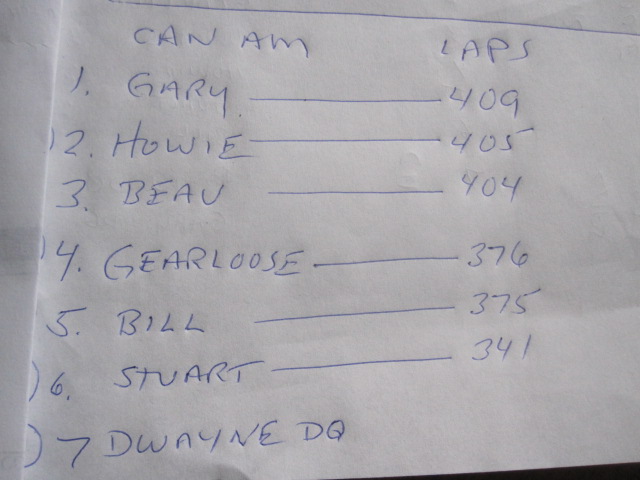 CAN AM LAPS
1. GARY. 409
2. HOWIE 405
3. BEAU 404
4. GEARLOOSE 376
5. BILL 375
6. STUART 341
7 DWAYNE DQ